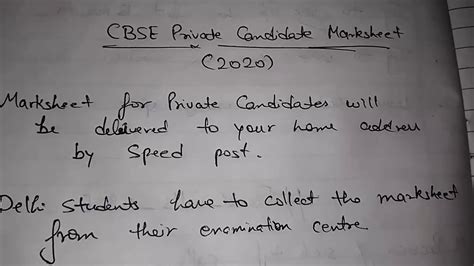 CBSE Private Candidate Marksheet
(2020)
Marksheet for Private Candidates will
be delivered to your home address
by Speed post.
Delhi Students have to collect the marksheet
from their examination centre